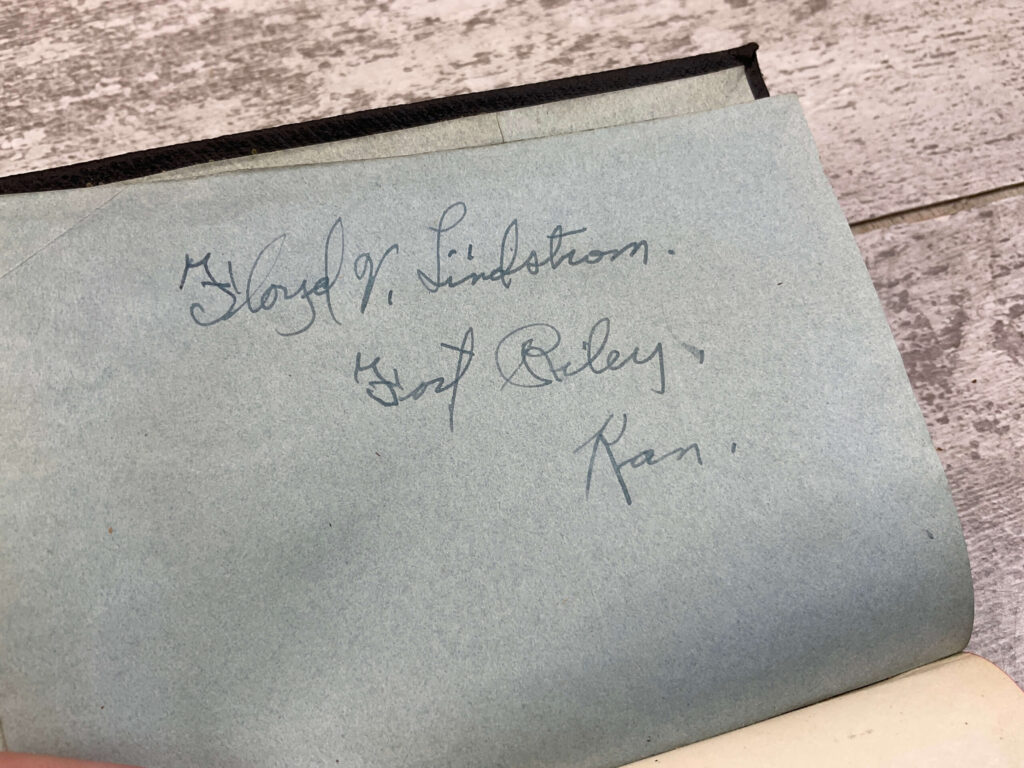 Floyd V. Lindstrom.
Fort Riley,
Kan.